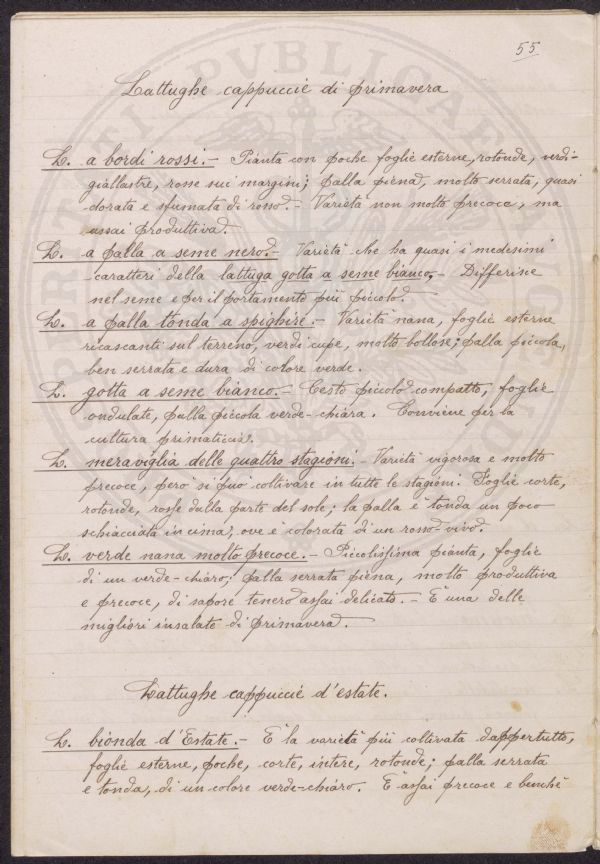 55
Lattughe cappuccie di primavera
L. a bordi rossi. - Pianta con poche foglie esterne, rotonde, verdi-
giallastre, rosse sui margini; palla piena, molto serrata, quasi
dorata e sfumata di rosso. - Varietà non molto precoce, ma
assai produttiva.
L. a palla a seme nero. - Varietà che ha quasi i medesimi
caratteri della lattuga gotta a seme bianco. - Differisce
nel seme e per il portamento più piccolo.
L. a palla tonda a spighire. - Varietà nana, foglie esterne
ricascanti sul terreno, verdi cupe, molto bollose; palla piccola,
ben serrata e dura di colore verde.
L. gotta a seme bianco. - Cesto piccolo compatto, foglie
ondulate, palla piccola verde-chiara. Conviene per la
cultura primaticcia.
L. meraviglia delle quattro stagioni. - Varietà vigorosa e molto
precoce, però si può coltivare in tutte le stagioni. Foglie corte,
rotonde, rosse dalla parte del sole; la palla è tonda un poco
schiacciata in cima, ove è colorata di un rosso-vivo.
L. verde nana molto precoce. - Piccolissima pianta, foglie
di un verde-chiaro; palla serrata piena, molto produttiva
e precoce, di sapore tenero assai delicato. - È una delle
migliori insalate di primavera.
Lattughe cappuccie d'estate.
L. bionda d'Estate. - È la varietà più coltivata dappertutto,
foglie esterne, poche, corte, intere, rotonde; palla serrata
e tonda, di un colore verde-chiaro. È assai precoce e benchè